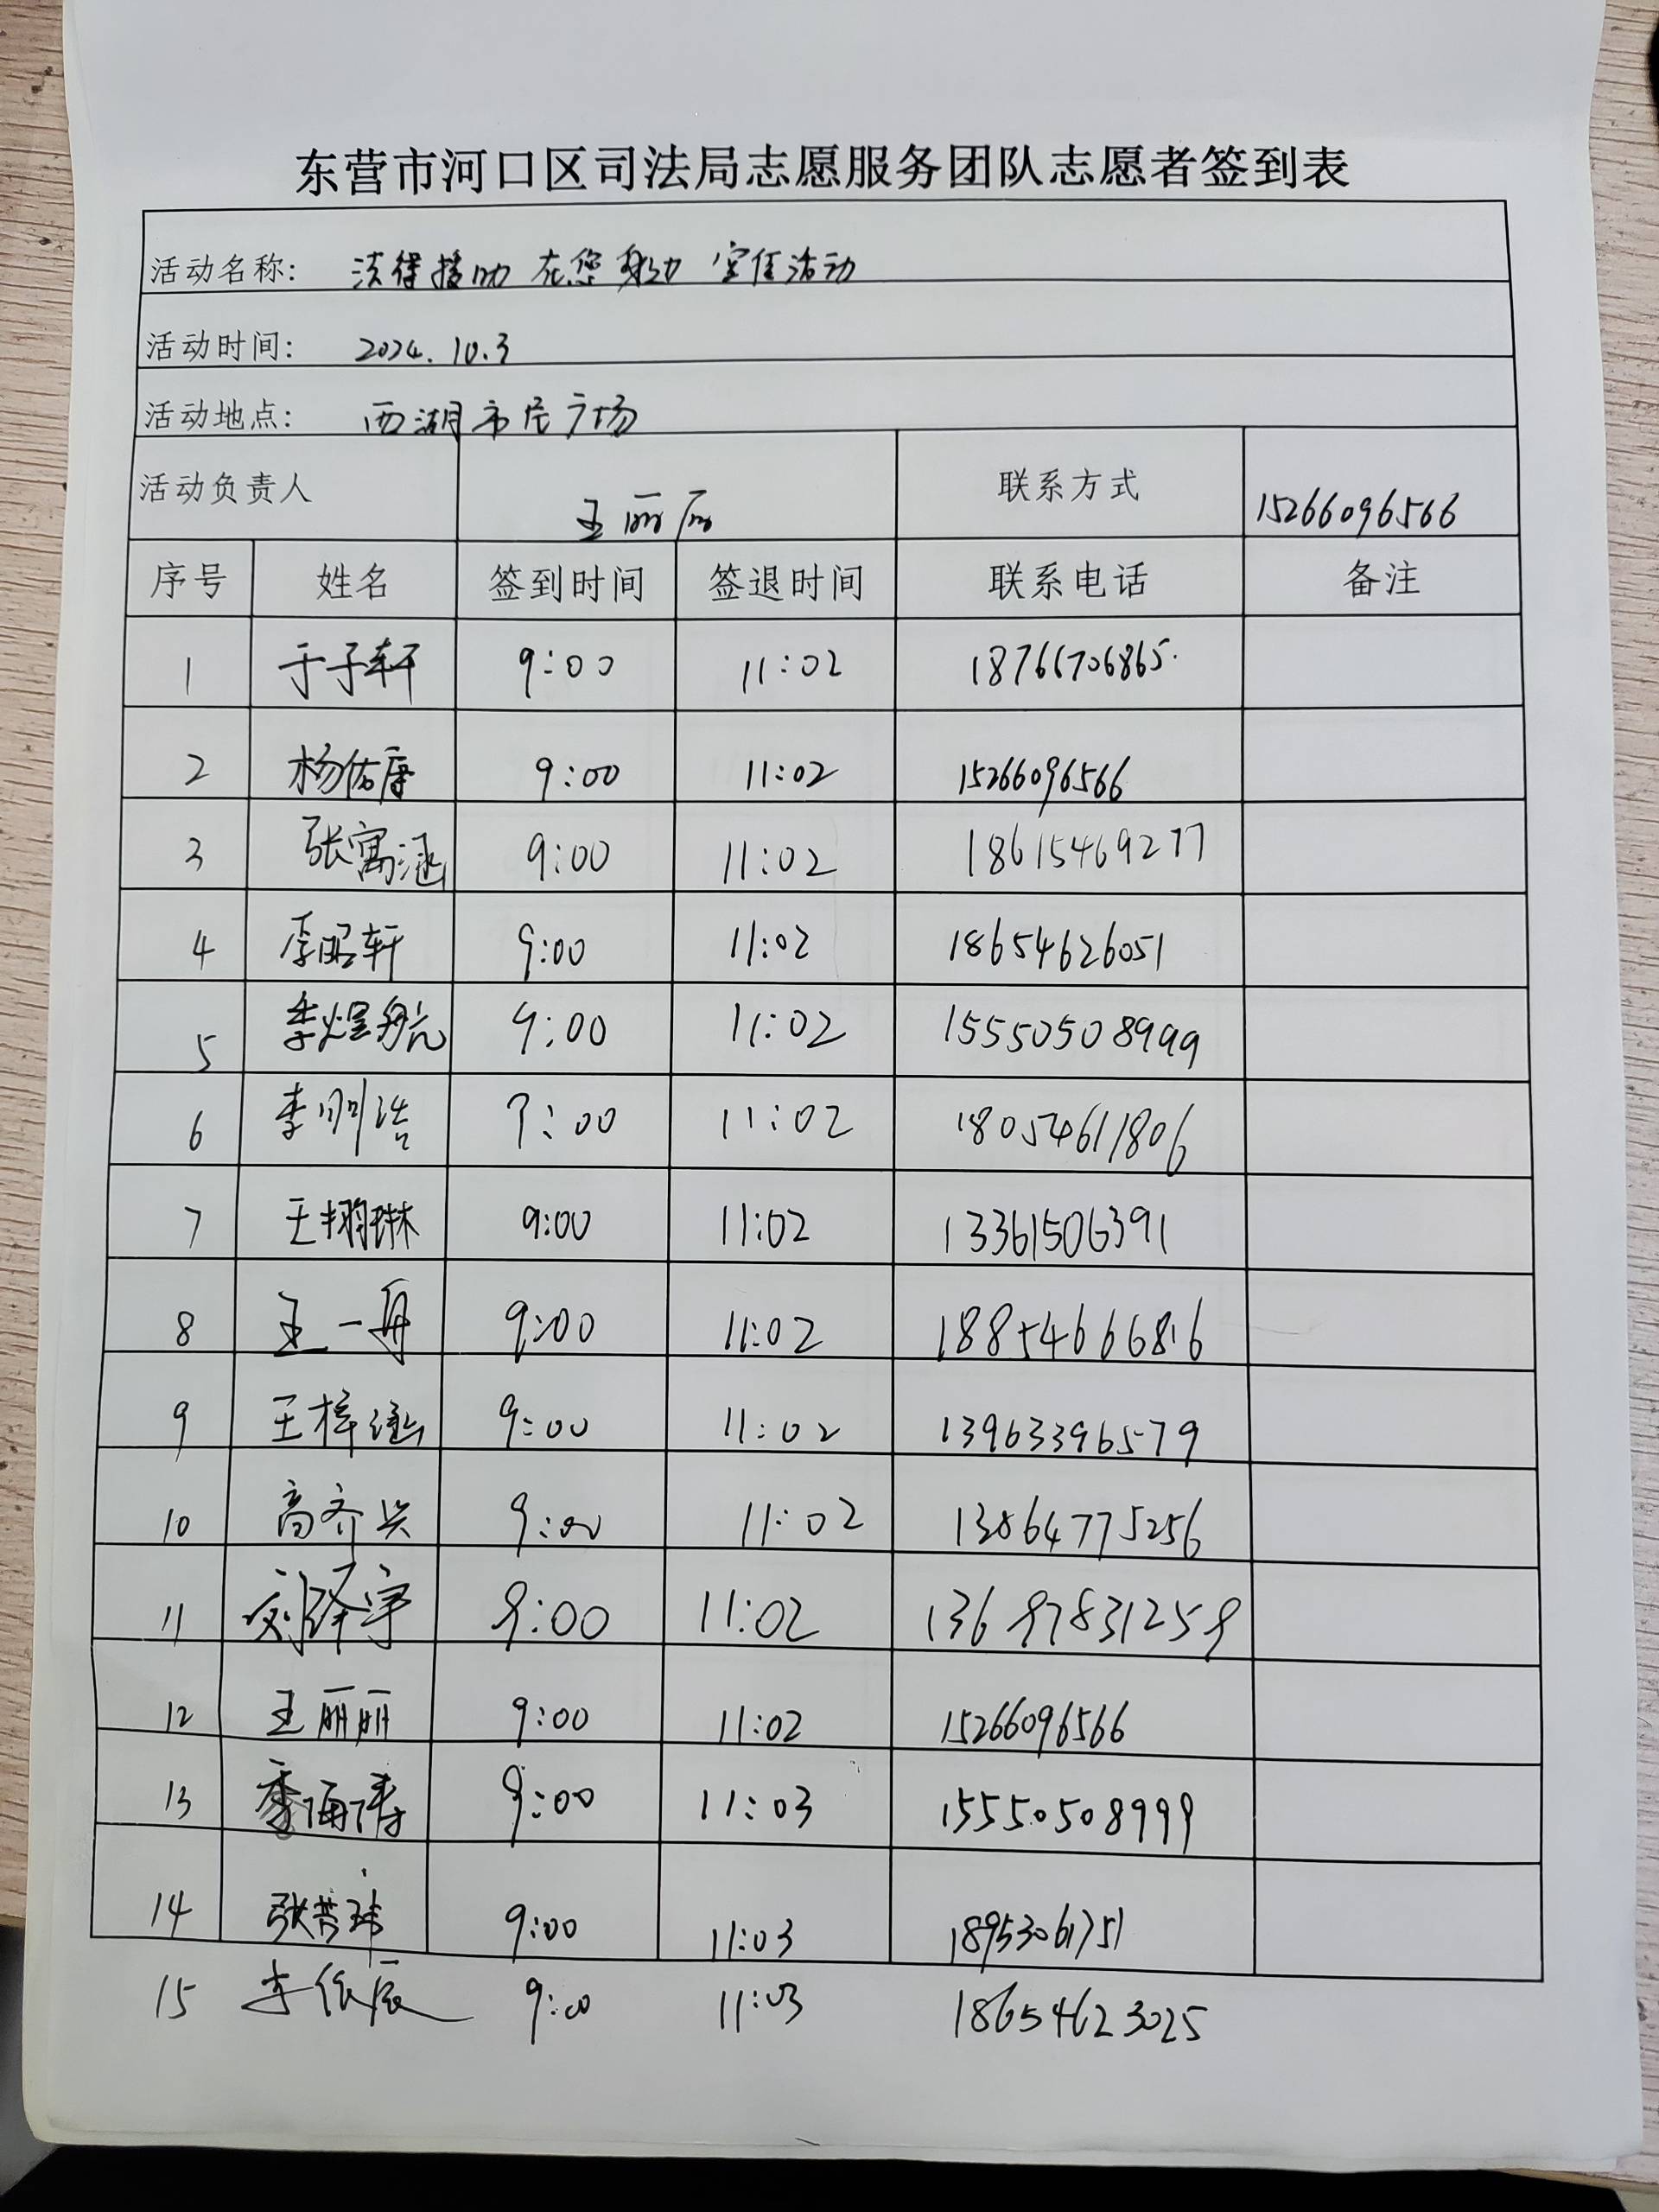 东营市河口区司法局志愿服务团队志愿者签到表
活动名称: 法律援助 在您身边 宣传活动
活动时间: 2024.10.3
活动地点: 西湖市民广场
活动负责人 王丽丽 联系方式 15266096566
序号 姓名 签到时间 签退时间 联系电话 备注
1 于子轩 9:00 11:02 18766706865
2 杨佑康 9:00 11:02 15266096566
3 张寓涵 9:00 11:02 18615469277
4 李昭轩 9:00 11:02 18654626051
5 季煜航 9:00 11:02 15550508999
6 李明浩 9:00 11:02 18054611806
7 王翊琳 9:00 11:02 13361506391
8 王一舟 9:00 11:02 18854666816
9 王梓涵 9:00 11:02 13963396579
10 高齐兴 9:00 11:02 13864775256
11 刘泽宇 9:00 11:02 13697831259
12 王丽丽 9:00 11:02 15266096566
13 季海涛 9:00 11:03 15550508999
14 9:00 11:03 18953061751
15 李依辰 9:00 11:03 18654623025